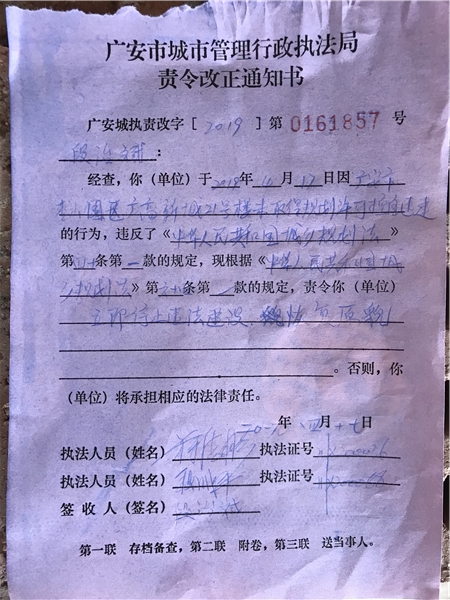 广安市城市管理行政执法局
责令改正通知书
广安城执责改字［2019］第 0161857 号
：
经查，你（单位）于2018年 月17日因广安市
园区 新城21号楼未取得规划许可 建
的行为，违反了《中华人民共和国城乡规划法》
第 条第一款的规定，现根据《中华人民共和国城
乡规划法》第 条第 款的规定，责令你（单位）
立即停止违法建设、恢复原貌
。否则，你
（单位）将承担相应的法律责任。
年四月十七日
执法人员（姓名） 执法证号
执法人员（姓名） 执法证号
签收人（签名）
第一联 存档备查，第二联 附卷，第三联 送当事人。